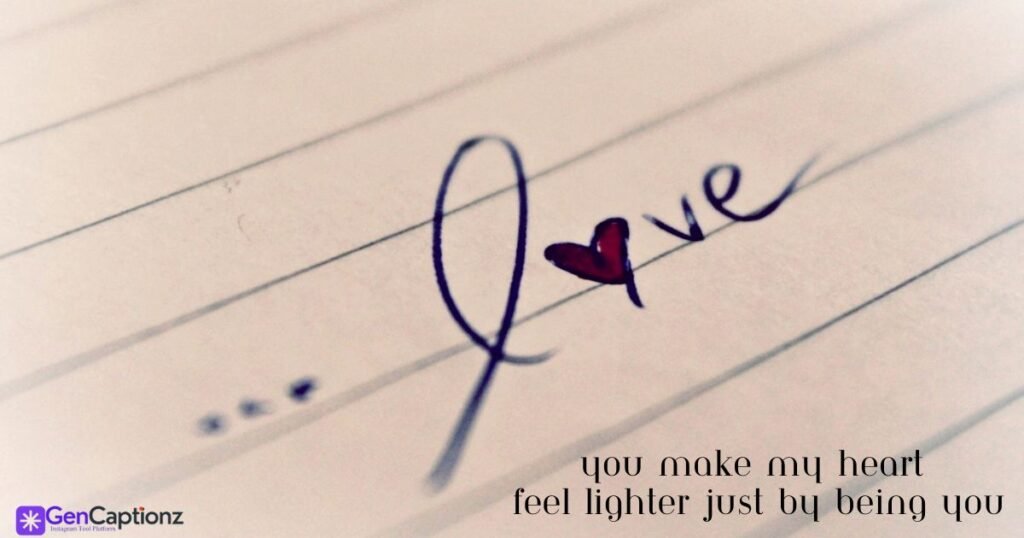 ... love
you make my heart
feel lighter just by being you
GenCaptionz
Instagram Tool Platform